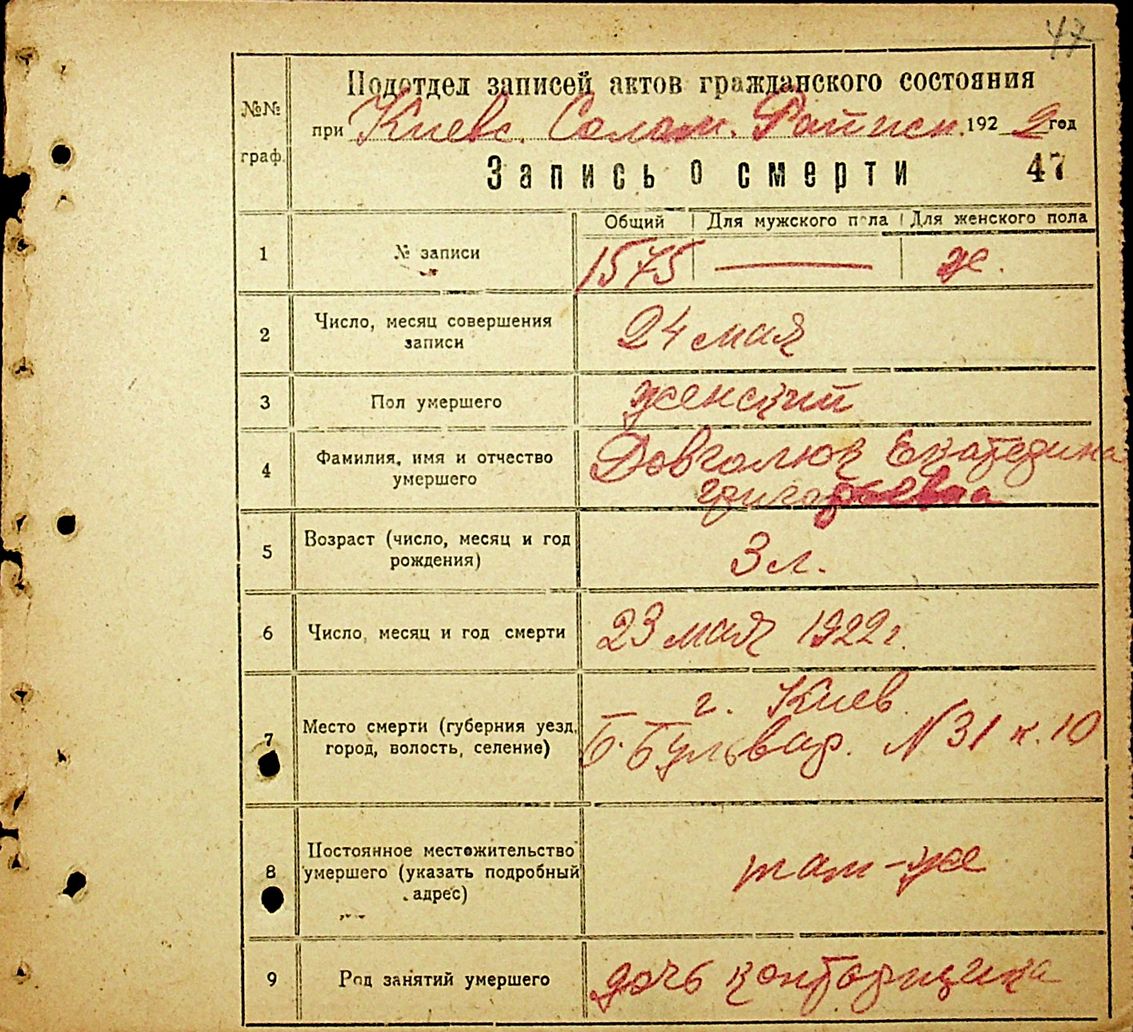 47
Подотдел записей актов гражданского состояния
№№ граф.
при Киевс. Солом. Райиси. 1922 год
Запись о смерти 47
Общий Для мужского пола Для женского пола
1 № записи 1575 — ж.
2 Число, месяц совершения записи 24 мая
3 Пол умершего женский
4 Фамилия, имя и отчество умершего Довголюк Екатерина
Григорьевна
5 Возраст (число, месяц и год рождения) 3 л.
6 Число, месяц и год смерти 23 мая 1922 г.
7 Место смерти (губерния уезд, город, волость, селение) г. Киев
Б. Бульвар. N 31 к. 10
8 Постоянное местожительство умершего (указать подробный адрес) там-же
9 Род занятий умершего дочь конторщика